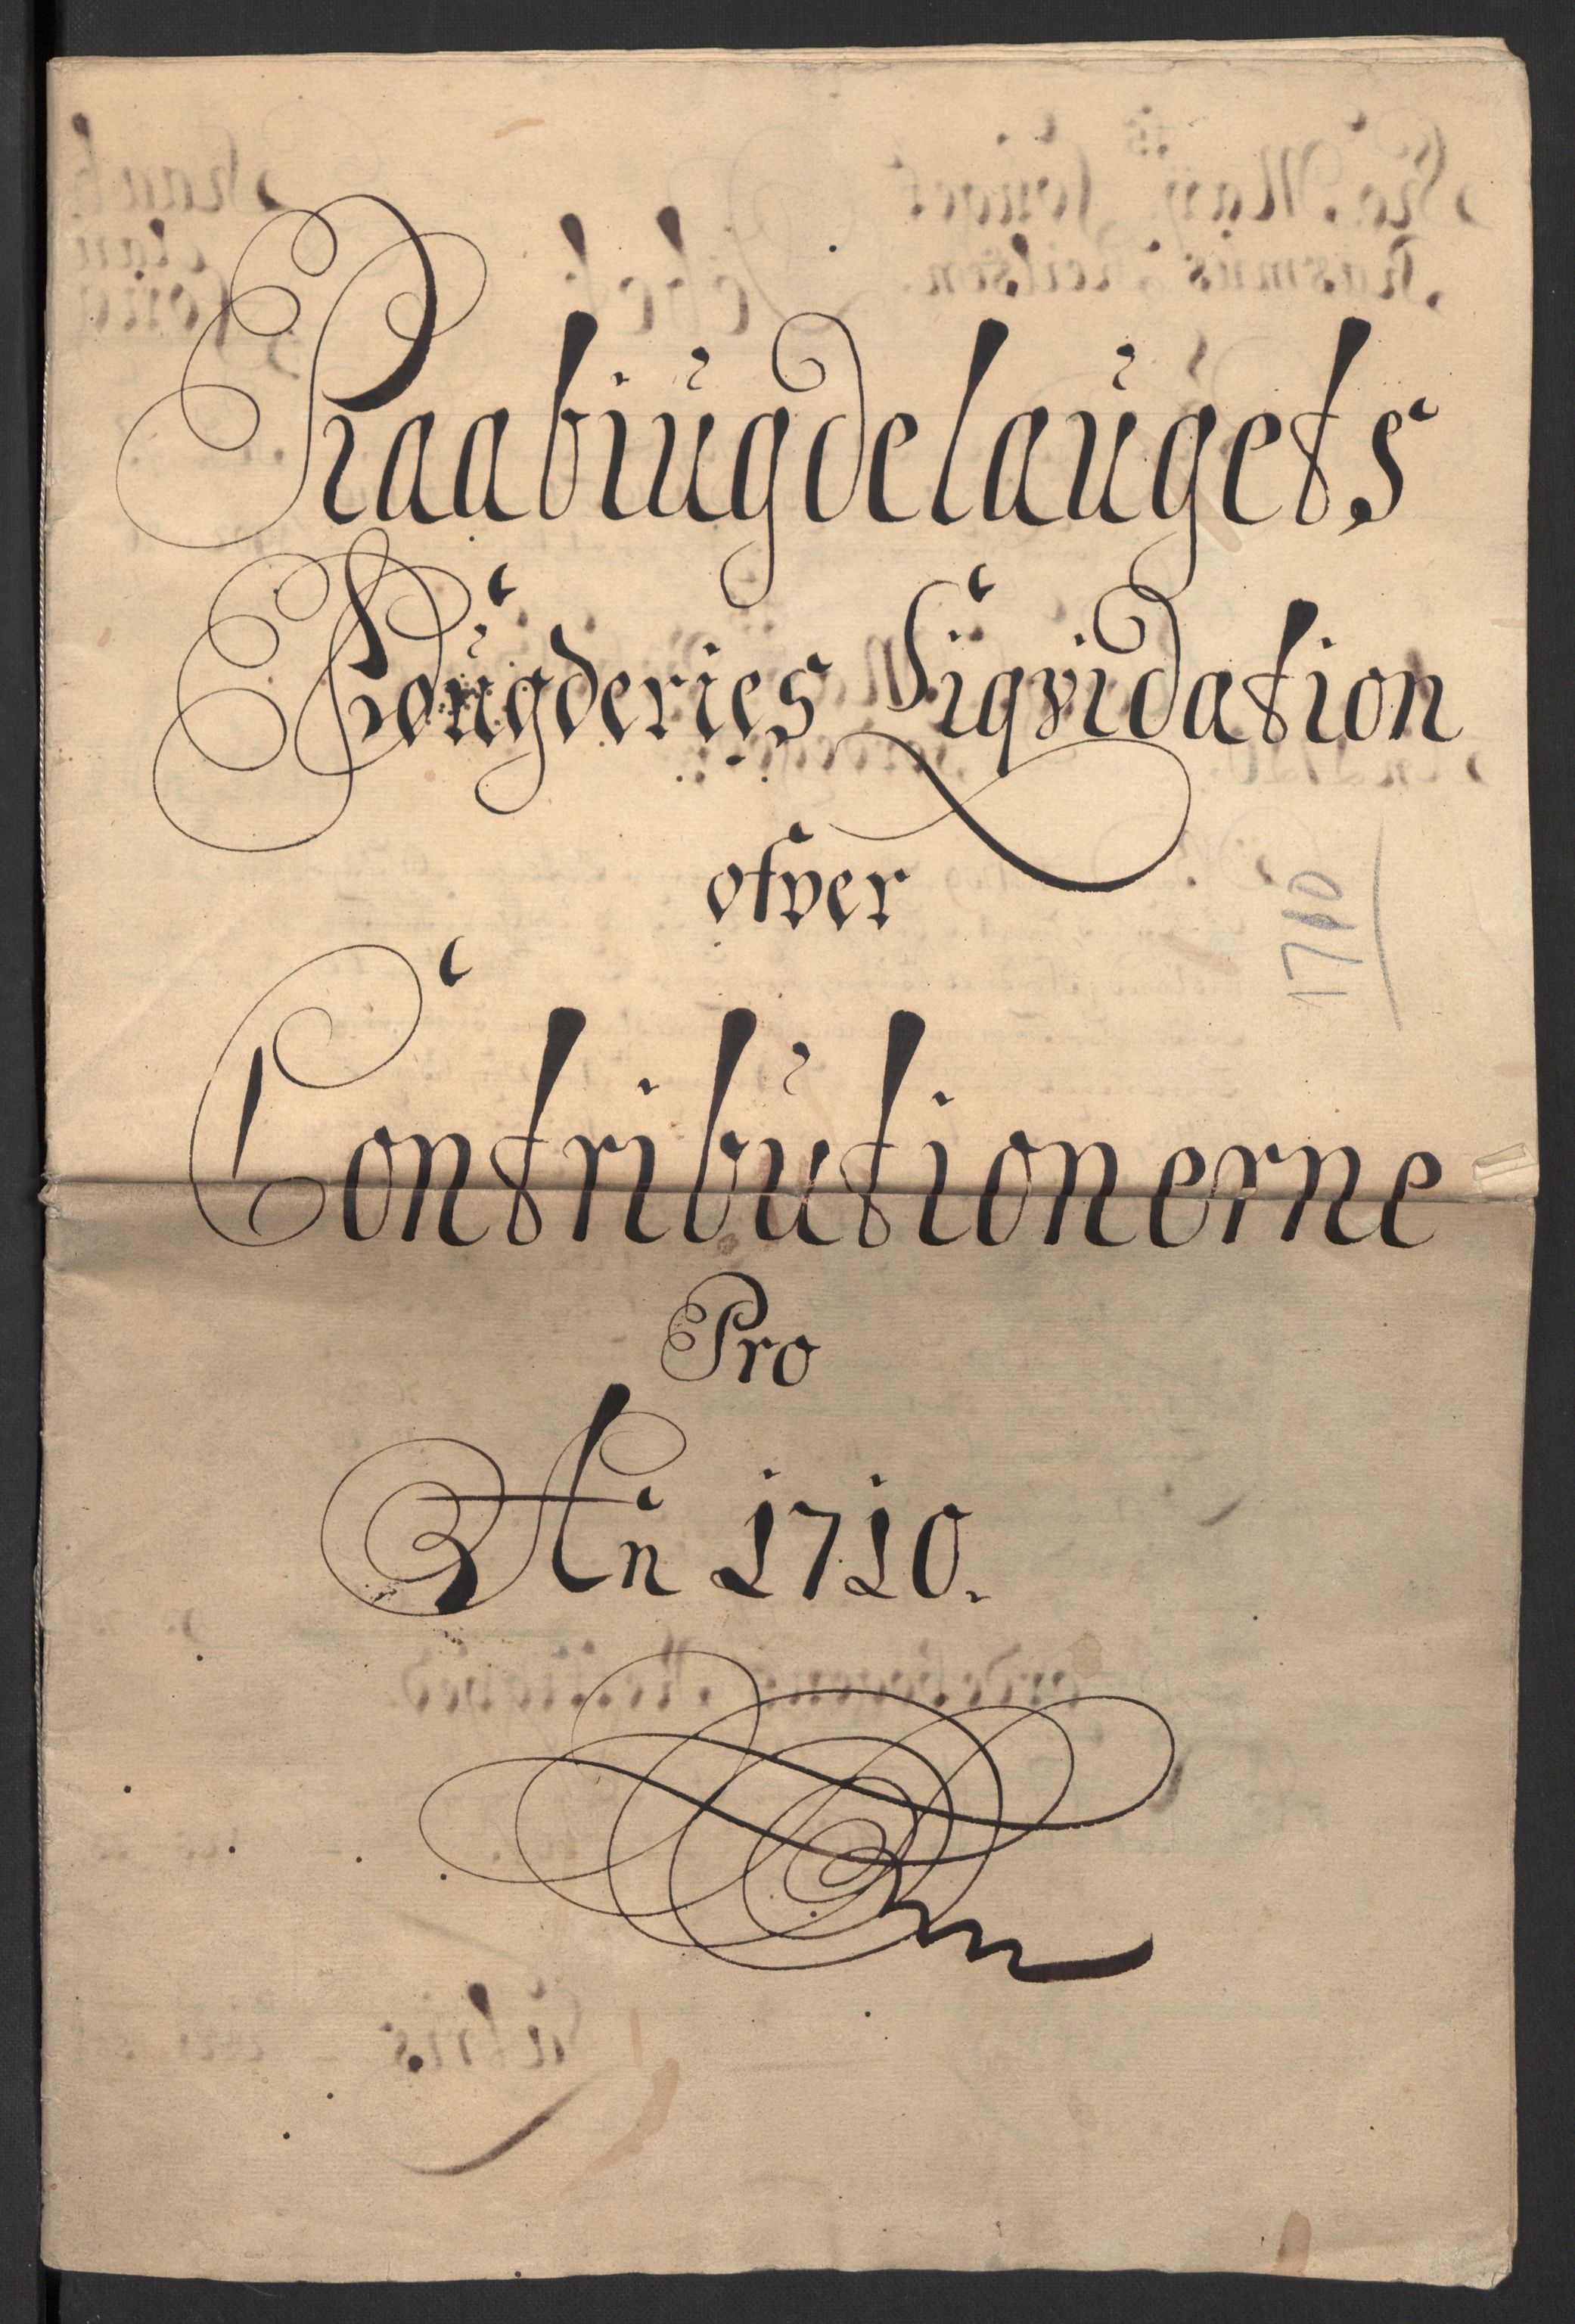 Raabÿugdelaugets
Fougderies Liqvidation
ofver
1710
Contributionerne
Pro
An 1710.